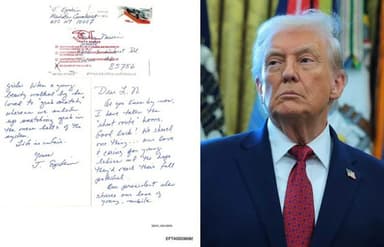 J. Epstein
Manhattan Correctional
NYC NY 10007
85756
Dear L.N.
As you know by now,
I have taken the
"short route" home.
Good luck! We shared
one thing... our love
& caring for young
ladies at the hope
they'd reach their full
potential.
Our president also
shares our love of
young, nubile
girls. When a young
beauty walked by he
loved to "grab snatch,"
whereas we ended
up snatching grub in
the mess halls of the
system.
Life is unfair.
Yours
J. Epstein